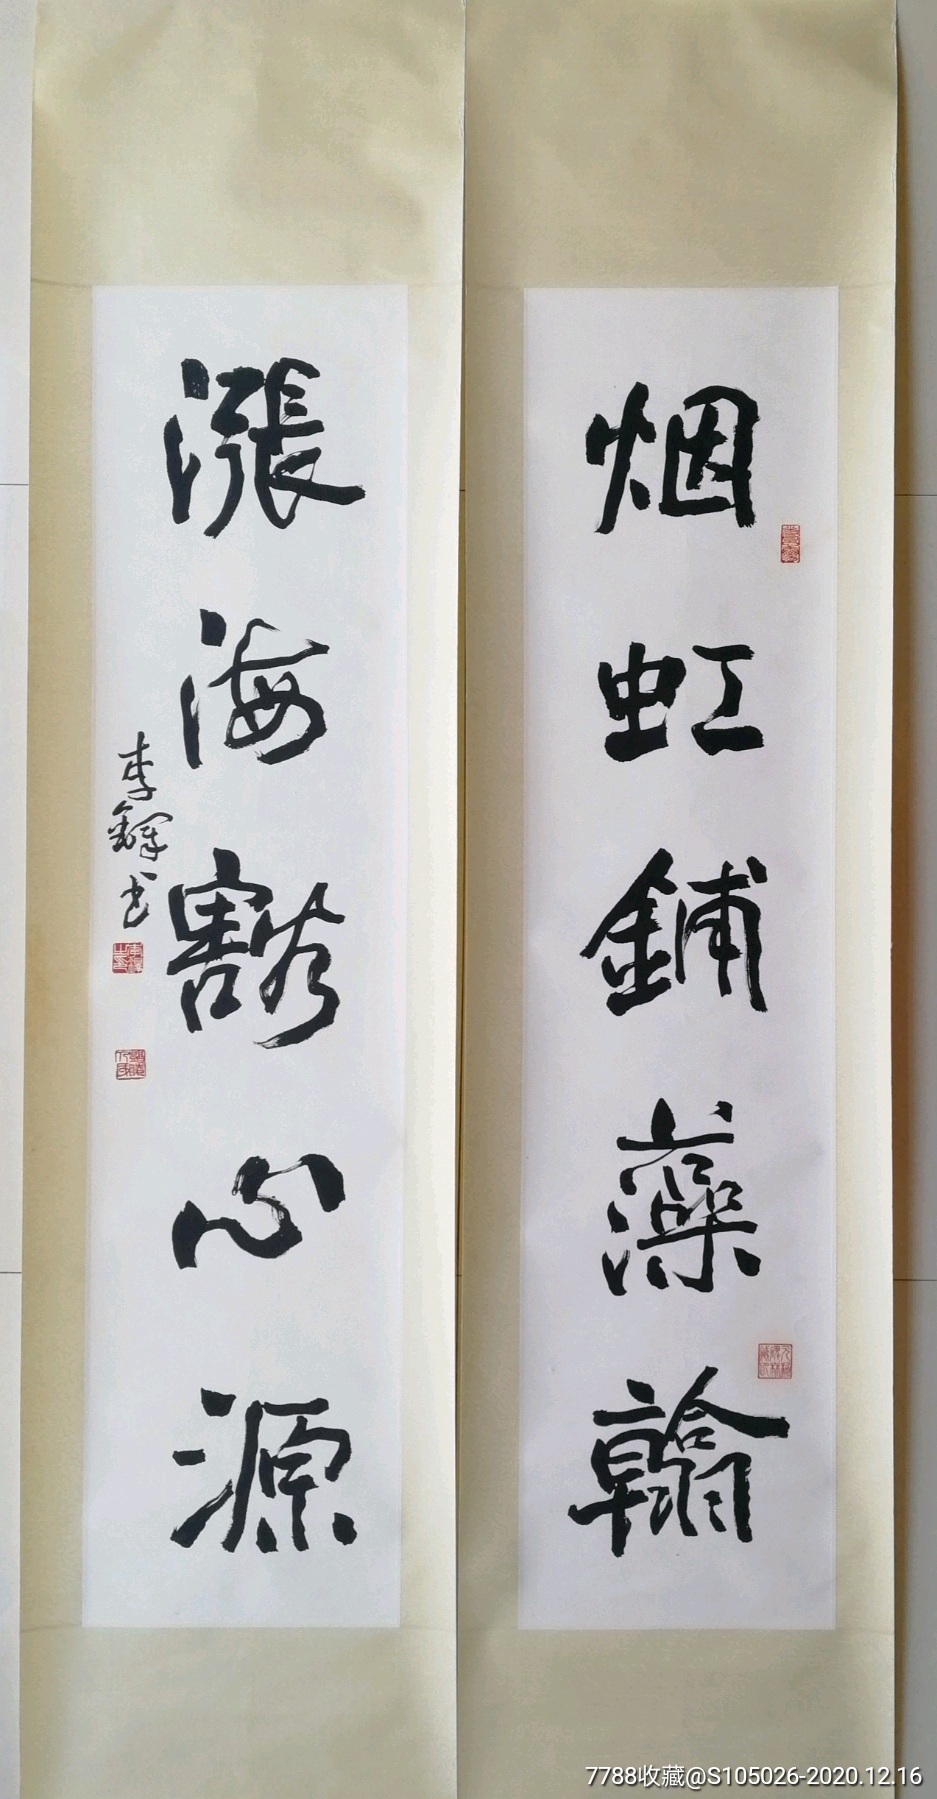 烟虹鋪藻翰
漲海豁心源
李鐸书
7788收藏@S105026-2020.12.16